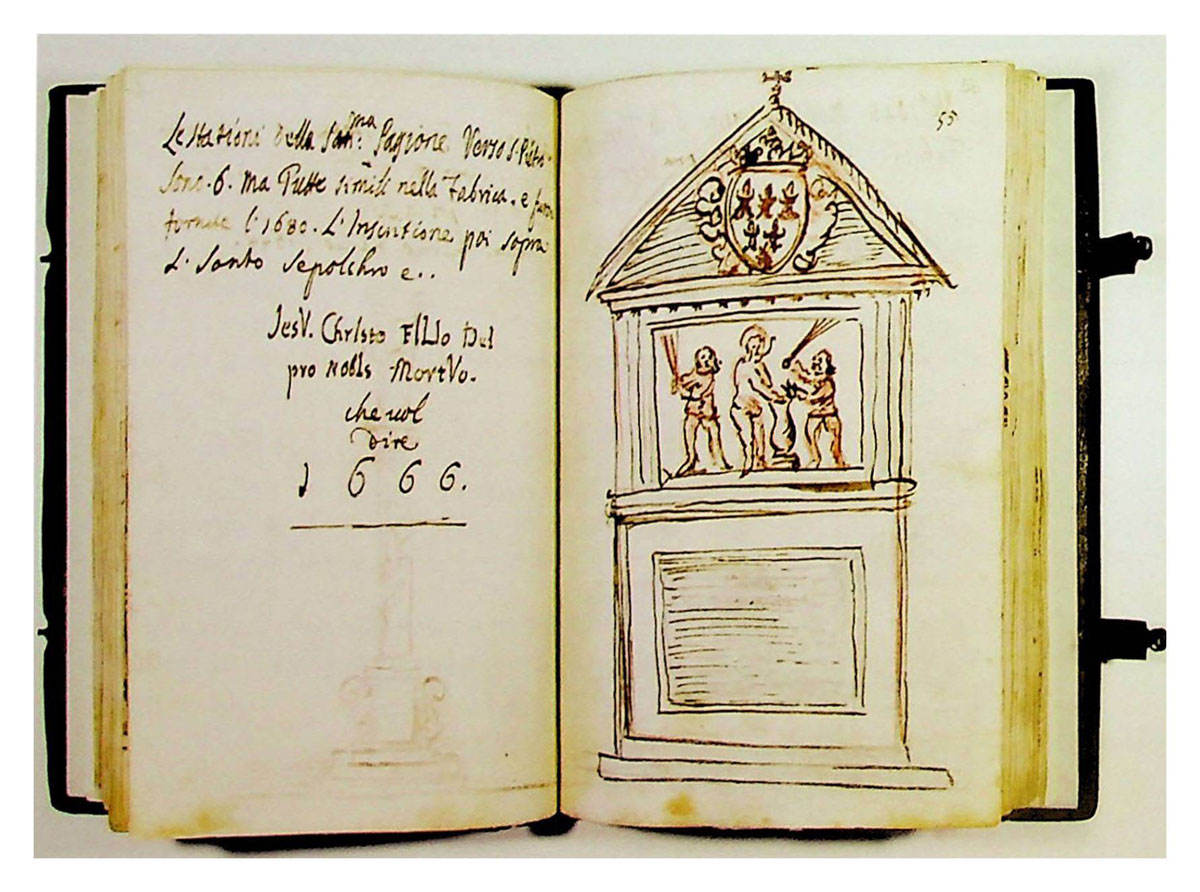 Le Stationi della San.ma Pasione Verso S. Pieto
Sono .6. ma Tutte simili nella Fabrica. e furon
fornite l'1680. L'Inscritione poi sopra
L. Santo Sepolchro e..
JesV. ChrIsto FILIo DeI
pro NobIs MortVo.
che uol
Dire
1666.
55